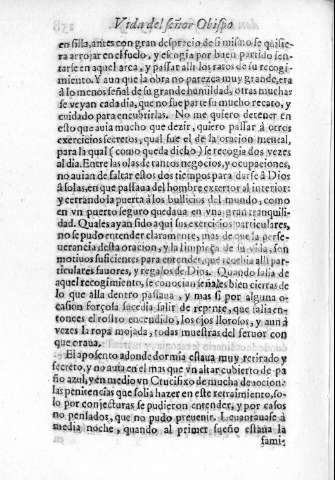 Vida del señor Obispo
en silla, antes con gran desprecio de si mismo se quisie-
ra arrojar en el suelo, y escogia por buen partido sen-
tarse en aquel arca, y passar alli los ratos de su recogi-
miento. Y aun que la obra no parezca muy grande, era
à lo menos señal de su grande humildad, otras muchas
se veyan cada dia, que no fue parte su mucho recato, y
cuidado para encubrirlas. No me quiero detener en
esto que auia mucho que dezir, quiero passar à otros
exercicios secretos, qual fue el de la oracion mental,
para la qual (como queda dicho) se recogia dos vezes
al dia. Entre las olas de tantos negocios, y ocupaciones,
no auian de faltar estos dos tiempos para darse à Dios
à solas, en que passaua del hombre exterior al interior:
y cerrando la puerta à los bullicios del mundo, como
en vn puerto seguro quedaua en vna gran tranquili-
dad. Quales ayan sido aqui sus exercicios particulares,
no se pudo entender claramente, mas de que la perse-
uerancia desta oracion, y la limpieça de su vida, son
motiuos suficientes para entender, que recebia alli par-
ticulares fauores, y regalos de Dios. Quando salia de
aquel recogimiento, se conocian señales bien ciertas de
lo que alla dentro passaua, y mas si por alguna o-
casion forçosa sucedia salir de repente, que salia en-
tonces el rostro encendido, los ojos llorosos, y aun à
vezes la ropa mojada, todas muestras del feruor con
que oraua.
El aposento adonde dormia estaua muy retirado y
secreto, y no auia en el mas que vn altar cubierto de pa-
ño azul, y en medio vn Crucifixo de mucha deuocion:
las penitencias que solia hazer en este retraimiento, so-
lo por conjecturas se pudieron entender, y por casos
no pensados, que no pudo preuenir. Leuantauase à
media noche, quando al primer sueño estaua la
fami-